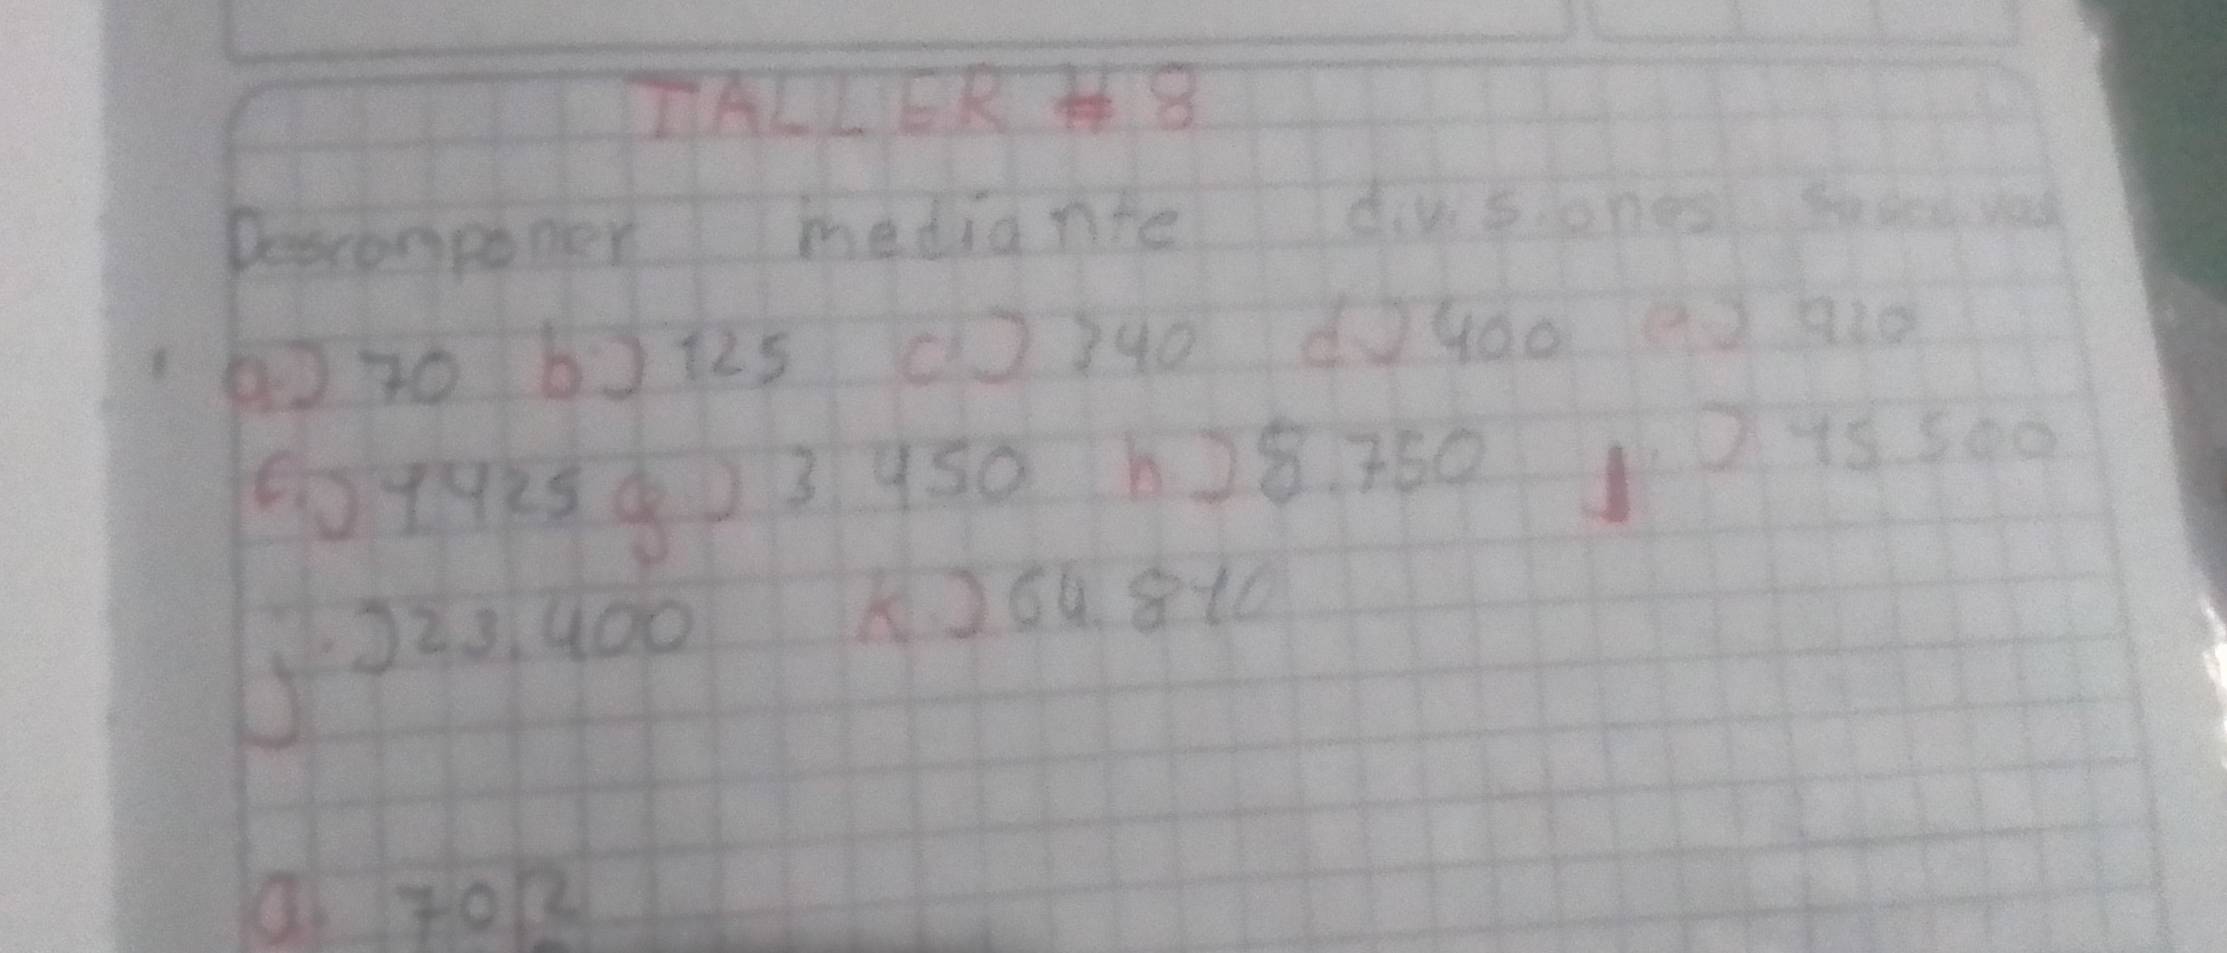 TALLER # 8
Descomponer mediante divisiones
a.) 70 b.) 125 c.) 340 d.) 400 e.) 920
f.) 1425 g.) 3.450 h.) 8.750 .) 45.500
j.) 23.400 k.) 64.810
a. 70 2